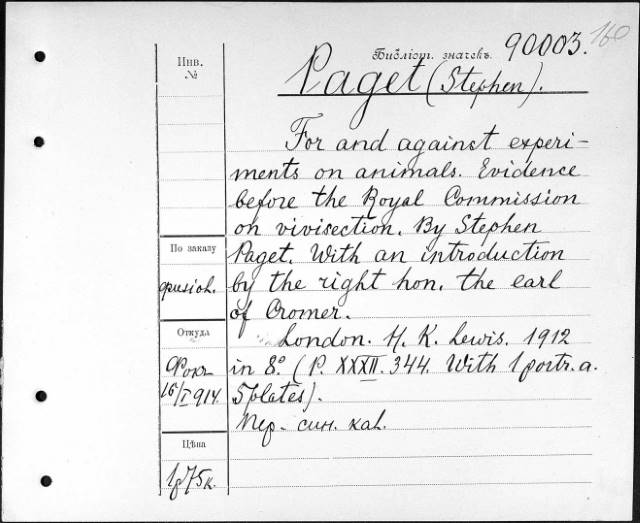 160
Инв.
№
Библіот. значекъ. 90003.
Paget (Stephen).
For and against experi-
ments on animals. Evidence
before the Royal Commission
on vivisection. By Stephen
Paget. With an introduction
by the right hon. the earl
of Cromer.
London. H. K. Lewis. 1912
in 8.° (P. XXXII. 344. With 1 portr. a.
5 plates).
Пер. син. кал.
По заказу
физіол.
Откуда
16/I 914.
Цѣна
1р 75к.